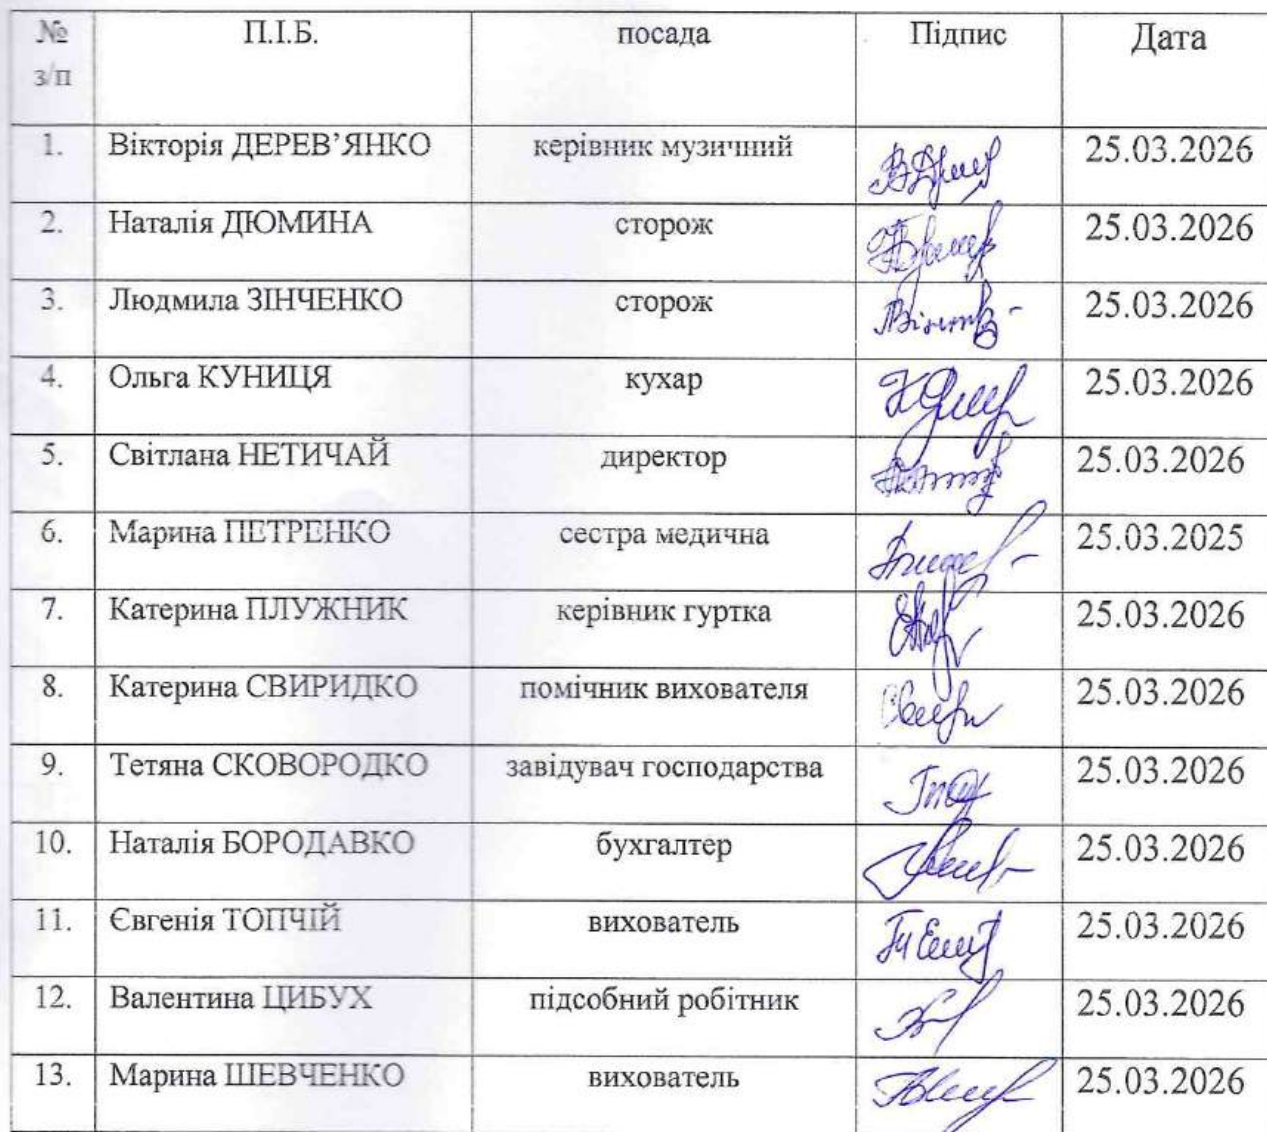 № з/п П.І.Б. посада Підпис Дата
1. Вікторія ДЕРЕВ’ЯНКО керівник музичний 25.03.2026
2. Наталія ДЮМИНА сторож 25.03.2026
3. Людмила ЗІНЧЕНКО сторож 25.03.2026
4. Ольга КУНИЦЯ кухар 25.03.2026
5. Світлана НЕТИЧАЙ директор 25.03.2026
6. Марина ПЕТРЕНКО сестра медична 25.03.2025
7. Катерина ПЛУЖНИК керівник гуртка 25.03.2026
8. Катерина СВИРИДКО помічник вихователя 25.03.2026
9. Тетяна СКОВОРОДКО завідувач господарства 25.03.2026
10. Наталія БОРОДАВКО бухгалтер 25.03.2026
11. Євгенія ТОПЧІЙ вихователь 25.03.2026
12. Валентина ЦИБУХ підсобний робітник 25.03.2026
13. Марина ШЕВЧЕНКО вихователь 25.03.2026